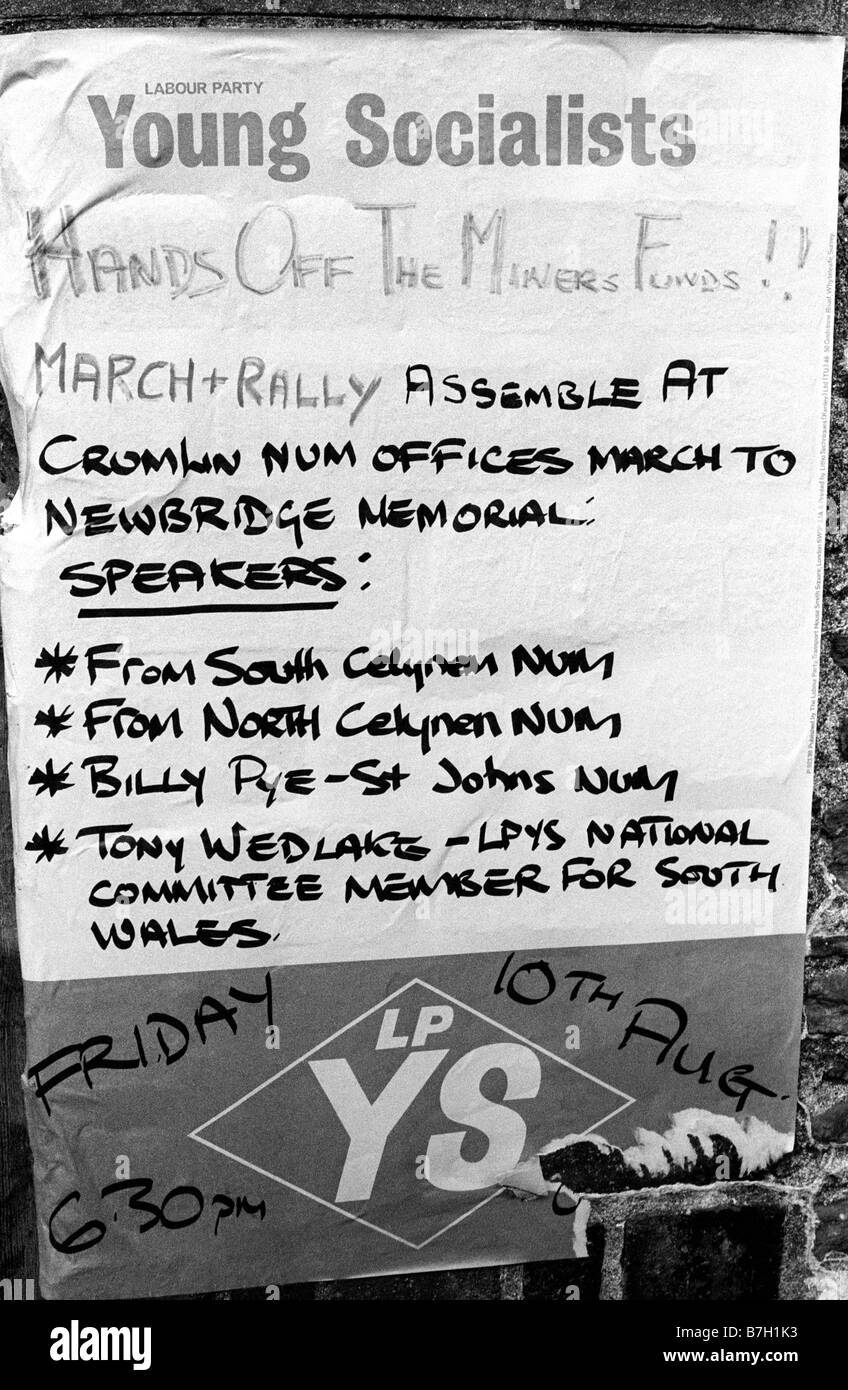 LABOUR PARTY
Young Socialists
HANDS OFF THE MINERS FUNDS!!
MARCH + RALLY ASSEMBLE AT
CRUMLIN NUM OFFICES MARCH TO
NEWBRIDGE MEMORIAL:
SPEAKERS:
* From South Celynen NUM
* From NORTH Celynen NUM
* BILLY PYE - St Johns NUM
* TONY WEDLAKE - LPYS NATIONAL
COMMITTEE MEMBER FOR SOUTH
WALES.
FRIDAY 10TH AUG.
LP
YS
6.30 pm
alamy
Image ID: B7H1K3
www.alamy.com